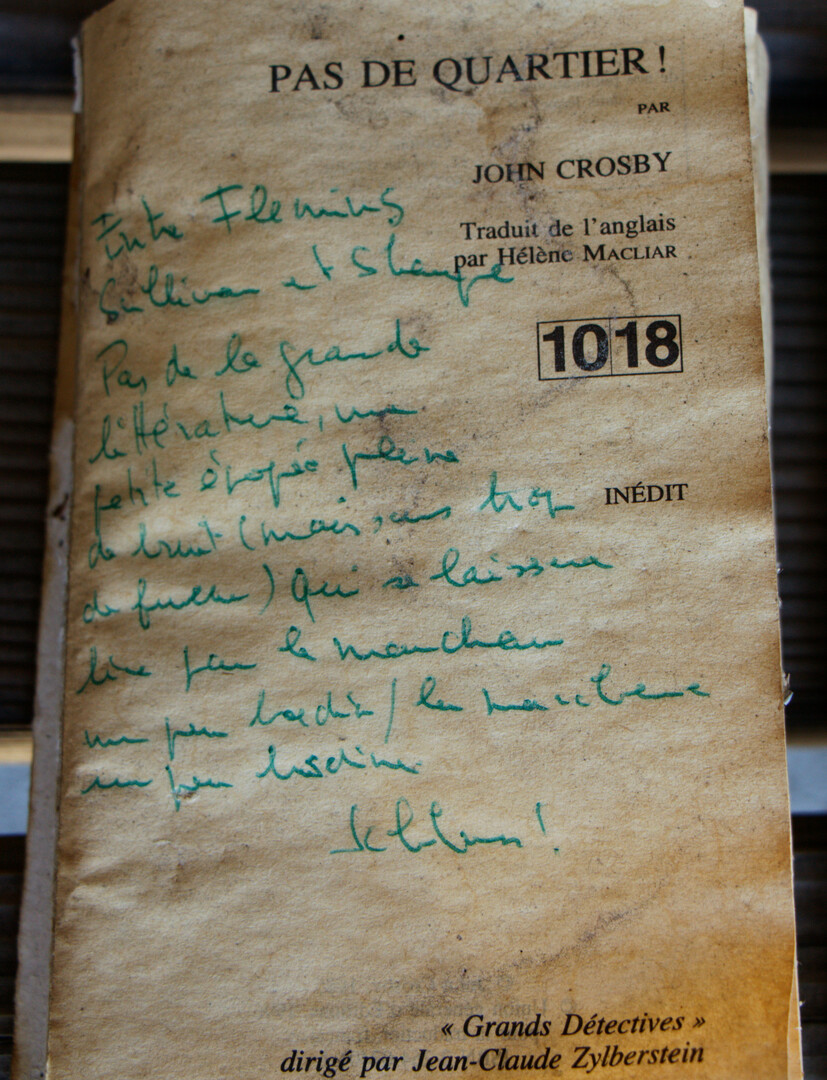 PAS DE QUARTIER !
PAR
JOHN CROSBY
Traduit de l'anglais
par Hélène MACLIAR
10|18
INÉDIT
Entre Fleming
Sullivan et Sharpe
Pas de la grande
littérature, une
petite épopée pleine
de bruit (mais sans trop
de fureur) qui se laissera
lire par le
un peu / la
un peu
« Grands Détectives »
dirigé par Jean-Claude Zylberstein